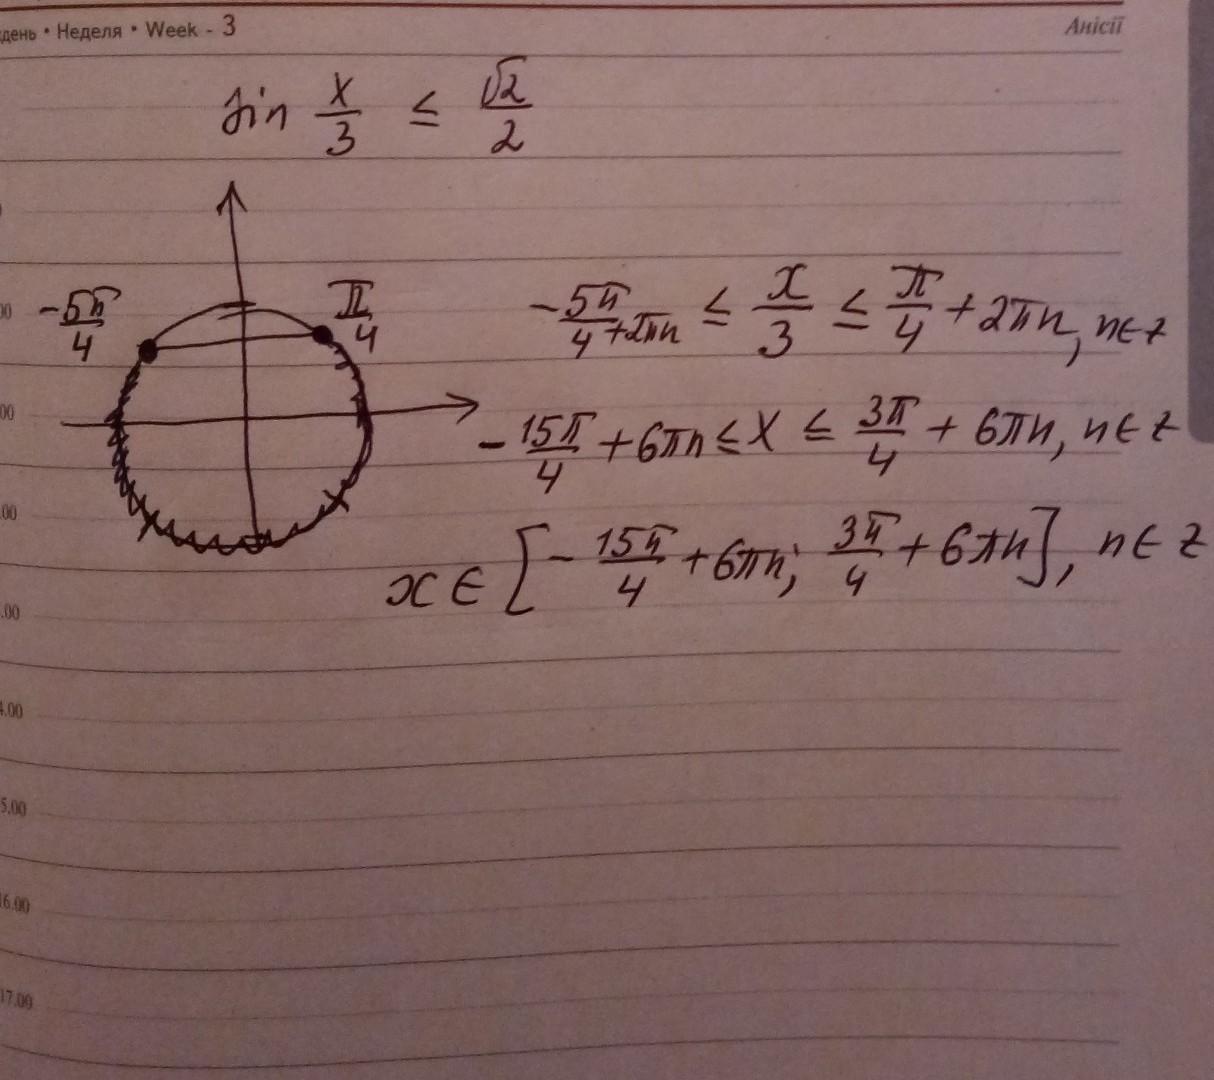 день • Неделя • Week - 3
Анісії
sin x/3 ≤ √2/2
-5π/4
π/4
-5π/4 + 2πn ≤ x/3 ≤ π/4 + 2πn, n∈z
-15π/4 + 6πn ≤ x ≤ 3π/4 + 6πn, n∈z
x ∈ [-15π/4 + 6πn; 3π/4 + 6πn], n∈z
00
00
.00
.00
4.00
5.00
16.00
17.00